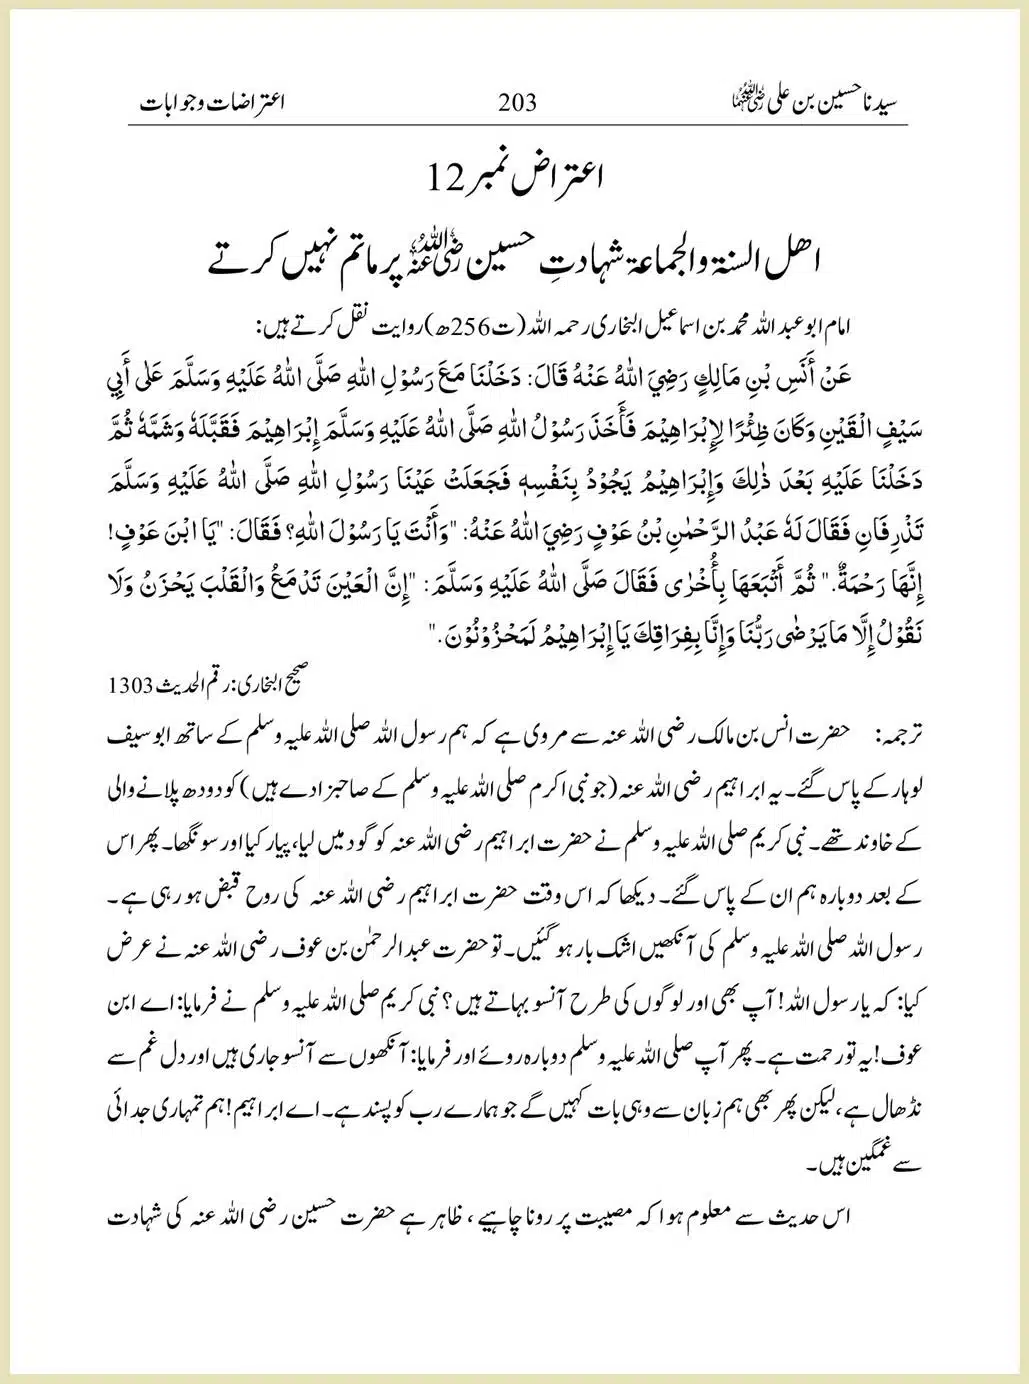 سیدنا حسین بن علی رضی اللہ عنہما 203 اعتراضات و جوابات
اعتراض نمبر 12
اھل السنۃ والجماعۃ شہادتِ حسین رضی اللہ عنہ پر ماتم نہیں کرتے
امام ابو عبد اللہ محمد بن اسماعیل البخاری رحمہ اللہ (ت256ھ) روایت نقل کرتے ہیں:
عَنْ أَنَسِ بْنِ مَالِكٍ رَضِيَ اللهُ عَنْهُ قَالَ: دَخَلْنَا مَعَ رَسُوْلِ اللهِ صَلَّى اللهُ عَلَيْهِ وَسَلَّمَ عَلٰى أَبِي
سَيْفٍ الْقَيْنِ وَكَانَ ظِئْرًا لِإِبْرَاهِيْمَ فَأَخَذَ رَسُوْلُ اللهِ صَلَّى اللهُ عَلَيْهِ وَسَلَّمَ إِبْرَاهِيْمَ فَقَبَّلَهٗ وَشَمَّهٗ ثُمَّ
دَخَلْنَا عَلَيْهِ بَعْدَ ذٰلِكَ وَإِبْرَاهِيْمُ يَجُوْدُ بِنَفْسِهٖ فَجَعَلَتْ عَيْنَا رَسُوْلِ اللهِ صَلَّى اللهُ عَلَيْهِ وَسَلَّمَ
تَذْرِفَانِ فَقَالَ لَهٗ عَبْدُ الرَّحْمٰنِ بْنُ عَوْفٍ رَضِيَ اللهُ عَنْهُ: "وَأَنْتَ يَا رَسُوْلَ اللهِ؟ فَقَالَ: "يَا ابْنَ عَوْفٍ!
إِنَّهَا رَحْمَةٌ." ثُمَّ أَتْبَعَهَا بِأُخْرٰى فَقَالَ صَلَّى اللهُ عَلَيْهِ وَسَلَّمَ: "إِنَّ الْعَيْنَ تَدْمَعُ وَالْقَلْبَ يَحْزَنُ وَلَا
نَقُوْلُ إِلَّا مَا يَرْضٰى رَبُّنَا وَإِنَّا بِفِرَاقِكَ يَا إِبْرَاهِيْمُ لَمَحْزُوْنُوْنَ."
صحیح البخاری: رقم الحدیث 1303
ترجمہ: حضرت انس بن مالک رضی اللہ عنہ سے مروی ہے کہ ہم رسول اللہ صلی اللہ علیہ وسلم کے ساتھ ابو سیف
لوہار کے پاس گئے۔ یہ ابراہیم رضی اللہ عنہ (جو نبی اکرم صلی اللہ علیہ وسلم کے صاحبزادے ہیں) کو دودھ پلانے والی
کے خاوند تھے۔ نبی کریم صلی اللہ علیہ وسلم نے حضرت ابراہیم رضی اللہ عنہ کو گود میں لیا، پیار کیا اور سونگھا۔ پھر اس
کے بعد دوبارہ ہم ان کے پاس گئے۔ دیکھا کہ اس وقت حضرت ابراہیم رضی اللہ عنہ کی روح قبض ہو رہی ہے۔
رسول اللہ صلی اللہ علیہ وسلم کی آنکھیں اشک بار ہو گئیں۔ تو حضرت عبد الرحمٰن بن عوف رضی اللہ عنہ نے عرض
کیا: کہ یا رسول اللہ! آپ بھی اور لوگوں کی طرح آنسو بہاتے ہیں؟ نبی کریم صلی اللہ علیہ وسلم نے فرمایا: اے ابن
عوف! یہ تو رحمت ہے۔ پھر آپ صلی اللہ علیہ وسلم دوبارہ روئے اور فرمایا: آنکھوں سے آنسو جاری ہیں اور دل غم سے
نڈھال ہے، لیکن پھر بھی ہم زبان سے وہی بات کہیں گے جو ہمارے رب کو پسند ہے۔ اے ابراہیم! ہم تمہاری جدائی
سے غمگین ہیں۔
اس حدیث سے معلوم ہوا کہ مصیبت پر رونا چاہیے، ظاہر ہے حضرت حسین رضی اللہ عنہ کی شہادت